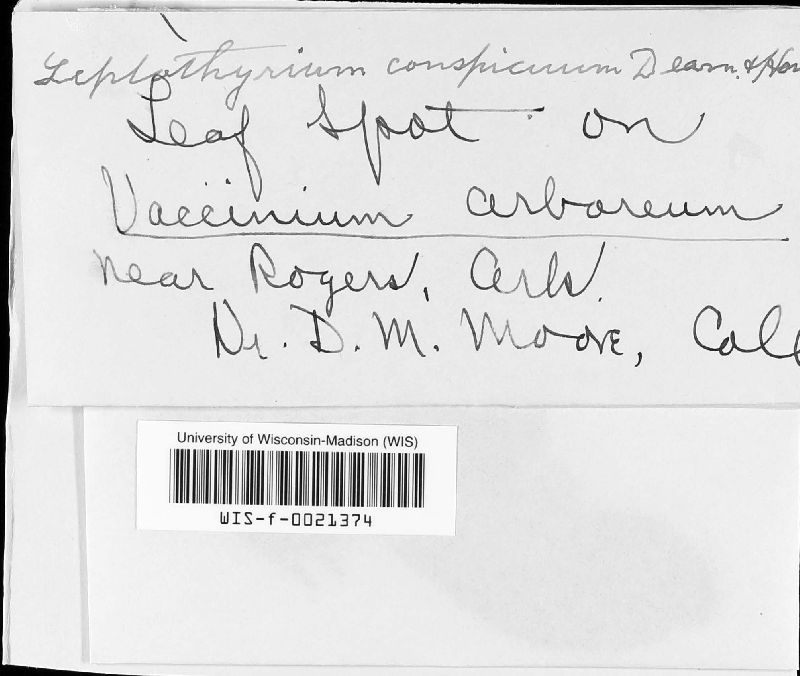 Leptothyrium conspicuum Dearn. &
Leaf Spot on
Vaccinium arboreum
near Rogers, Ark.
Dr. D. M. Moore, Coll
University of Wisconsin-Madison (WIS)
WIS-f-0021374